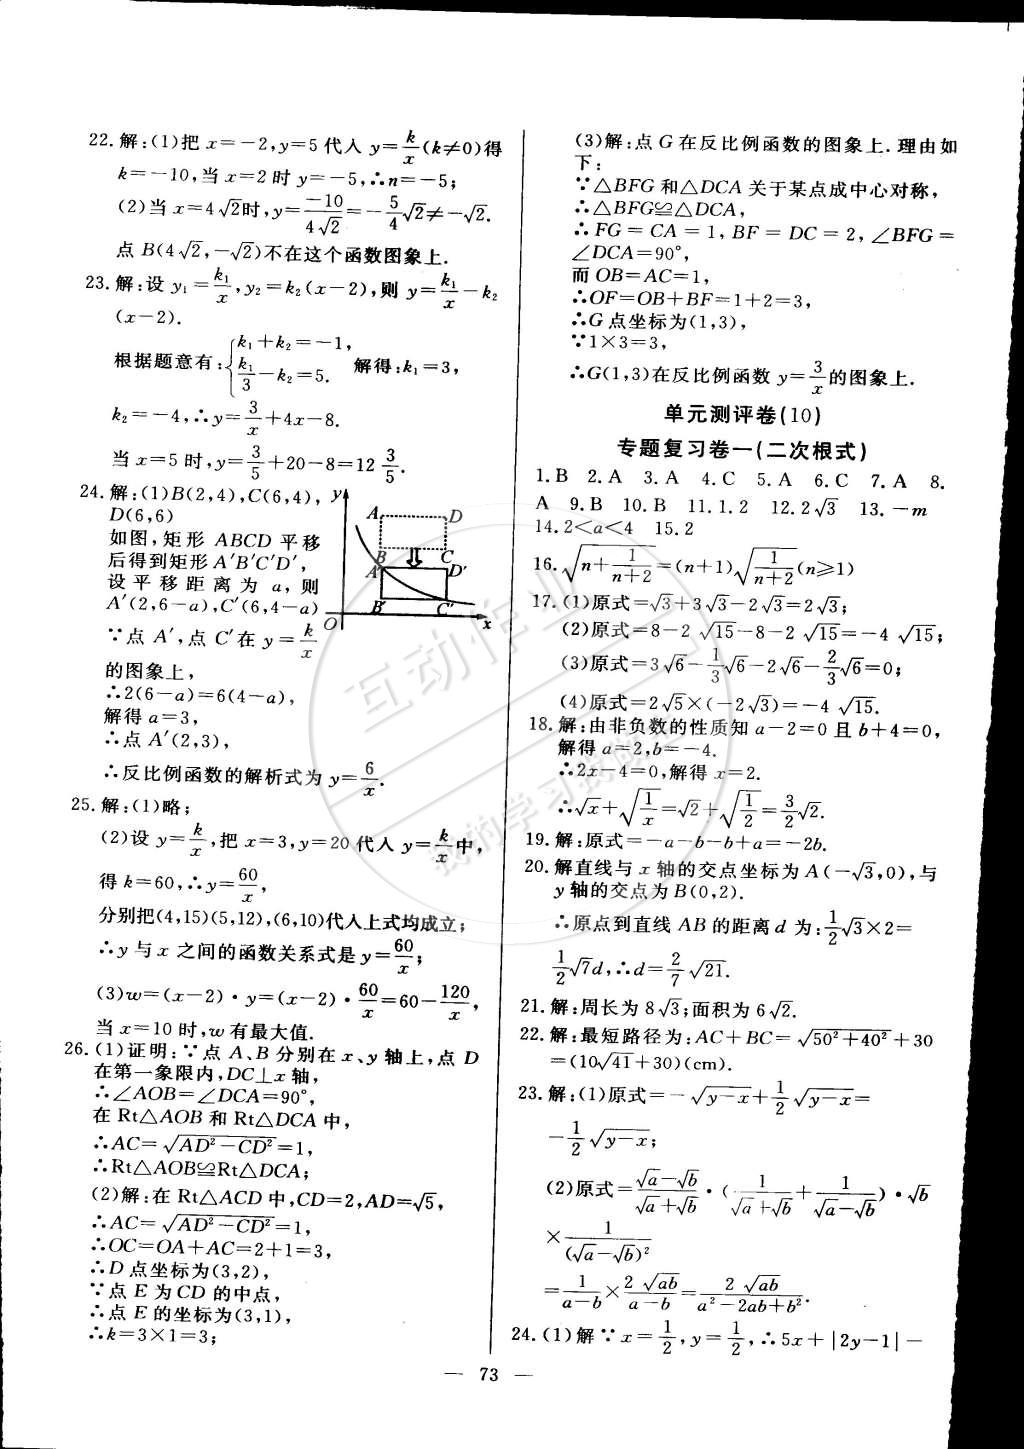 22. 解:(1)把 x=-2,y=5代入 y=k/x(k≠0)得
k=-10,当 x=2 时 y=-5,∴n=-5;
(2)当 x=4√2时,y=-10/4√2=-5/4√2≠-√2.
点 B(4√2,-√2)不在这个函数图象上.
23. 解:设 y₁=k₁/x,y₂=k₂(x-2),则 y=k₁/x-k₂
(x-2).
根据题意有:{k₁+k₂=-1, k₁/3-k₂=5. 解得:k₁=3,
k₂=-4,∴y=3/x+4x-8.
当 x=5 时,y=3/5+20-8=12 3/5.
24. 解:(1)B(2,4),C(6,4),
D(6,6)
如图,矩形 ABCD 平移
后得到矩形 A′B′C′D′,
设平移距离为 a,则
A′(2,6-a),C′(6,4-a)
y
A
D
B
C
A′
D′
B′
C′
O
x
∵点 A′,点 C′在 y=k/x
的图象上,
∴2(6-a)=6(4-a),
解得 a=3,
∴点 A′(2,3),
∴反比例函数的解析式为 y=6/x.
25. 解:(1)略;
(2)设 y=k/x,把 x=3,y=20代入 y=k/x中,
得 k=60,∴y=60/x,
分别把(4,15)(5,12),(6,10)代入上式均成立;
∴y 与 x 之间的函数关系式是 y=60/x;
(3)w=(x-2)·y=(x-2)·60/x=60-120/x,
当 x=10 时,w 有最大值.
26. (1)证明:∵点 A、B 分别在 x、y 轴上,点 D
在第一象限内,DC⊥x 轴,
∴∠AOB=∠DCA=90°,
在 Rt△AOB 和 Rt△DCA 中,
∴AC=√(AD²-CD²)=1,
∴Rt△AOB≌Rt△DCA;
(2)解:在 Rt△ACD 中,CD=2,AD=√5,
∴AC=√(AD²-CD²)=1,
∴OC=OA+AC=2+1=3,
∴D 点坐标为(3,2),
∵点 E 为 CD 的中点,
∴点 E 的坐标为(3,1),
∴k=3×1=3;
(3)解:点 G 在反比例函数的图象上. 理由如
下:
∵△BFG 和△DCA 关于某点成中心对称,
∴△BFG≌△DCA,
∴FG=CA=1,BF=DC=2,∠BFG=
∠DCA=90°,
而 OB=AC=1,
∴OF=OB+BF=1+2=3,
∴G 点坐标为(1,3),
∵1×3=3,
∴G(1,3)在反比例函数 y=3/x的图象上.
单元测评卷(10)
专题复习卷一(二次根式)
1. B 2. A 3. A 4. C 5. A 6. C 7. A 8.
A 9. B 10. B 11. 1. 2 12. 2√3 13. -m
14. 2<a<4 15. 2
16. √(n+1/(n+2))=(n+1)√(1/(n+2))(n≥1)
17. (1)原式=√3+3√3-2√3=2√3;
(2)原式=8-2√15-8-2√15=-4√15;
(3)原式=3√6-1/3√6-2√6-2/3√6=0;
(4)原式=2√5×(-2√3)=-4√15.
18. 解:由非负数的性质知 a-2=0 且 b+4=0,
解得 a=2,b=-4.
∴2x-4=0,解得 x=2.
∴√x+√(1/x)=√2+√(1/2)=3/2√2.
19. 解:原式=-a-b-b+a=-2b.
20. 解直线与 x 轴的交点坐标为 A(-√3,0),与
y 轴的交点为 B(0,2).
∴原点到直线 AB 的距离 d 为:1/2√3×2=
1/2√7d,∴d=2/7√21.
21. 解:周长为 8√3;面积为 6√2.
22. 解:最短路径为:AC+BC=√(50²+40²)+30
=(10√41+30)(cm).
23. 解:(1)原式=-√(y-x)+1/2√(y-x)=
-1/2√(y-x);
(2)原式=(√a-√b)/(√a+√b)·(1/(√a+√b)+1/(√a-√b))·√b
×1/(√a-√b)²
=1/(a-b)×2√ab/(a-b)=2√ab/(a²-2ab+b²).
24. (1)解∵x=1/2,y=1/2,∴5x+|2y-1|-
— 73 —
互动作业
我的学习教练